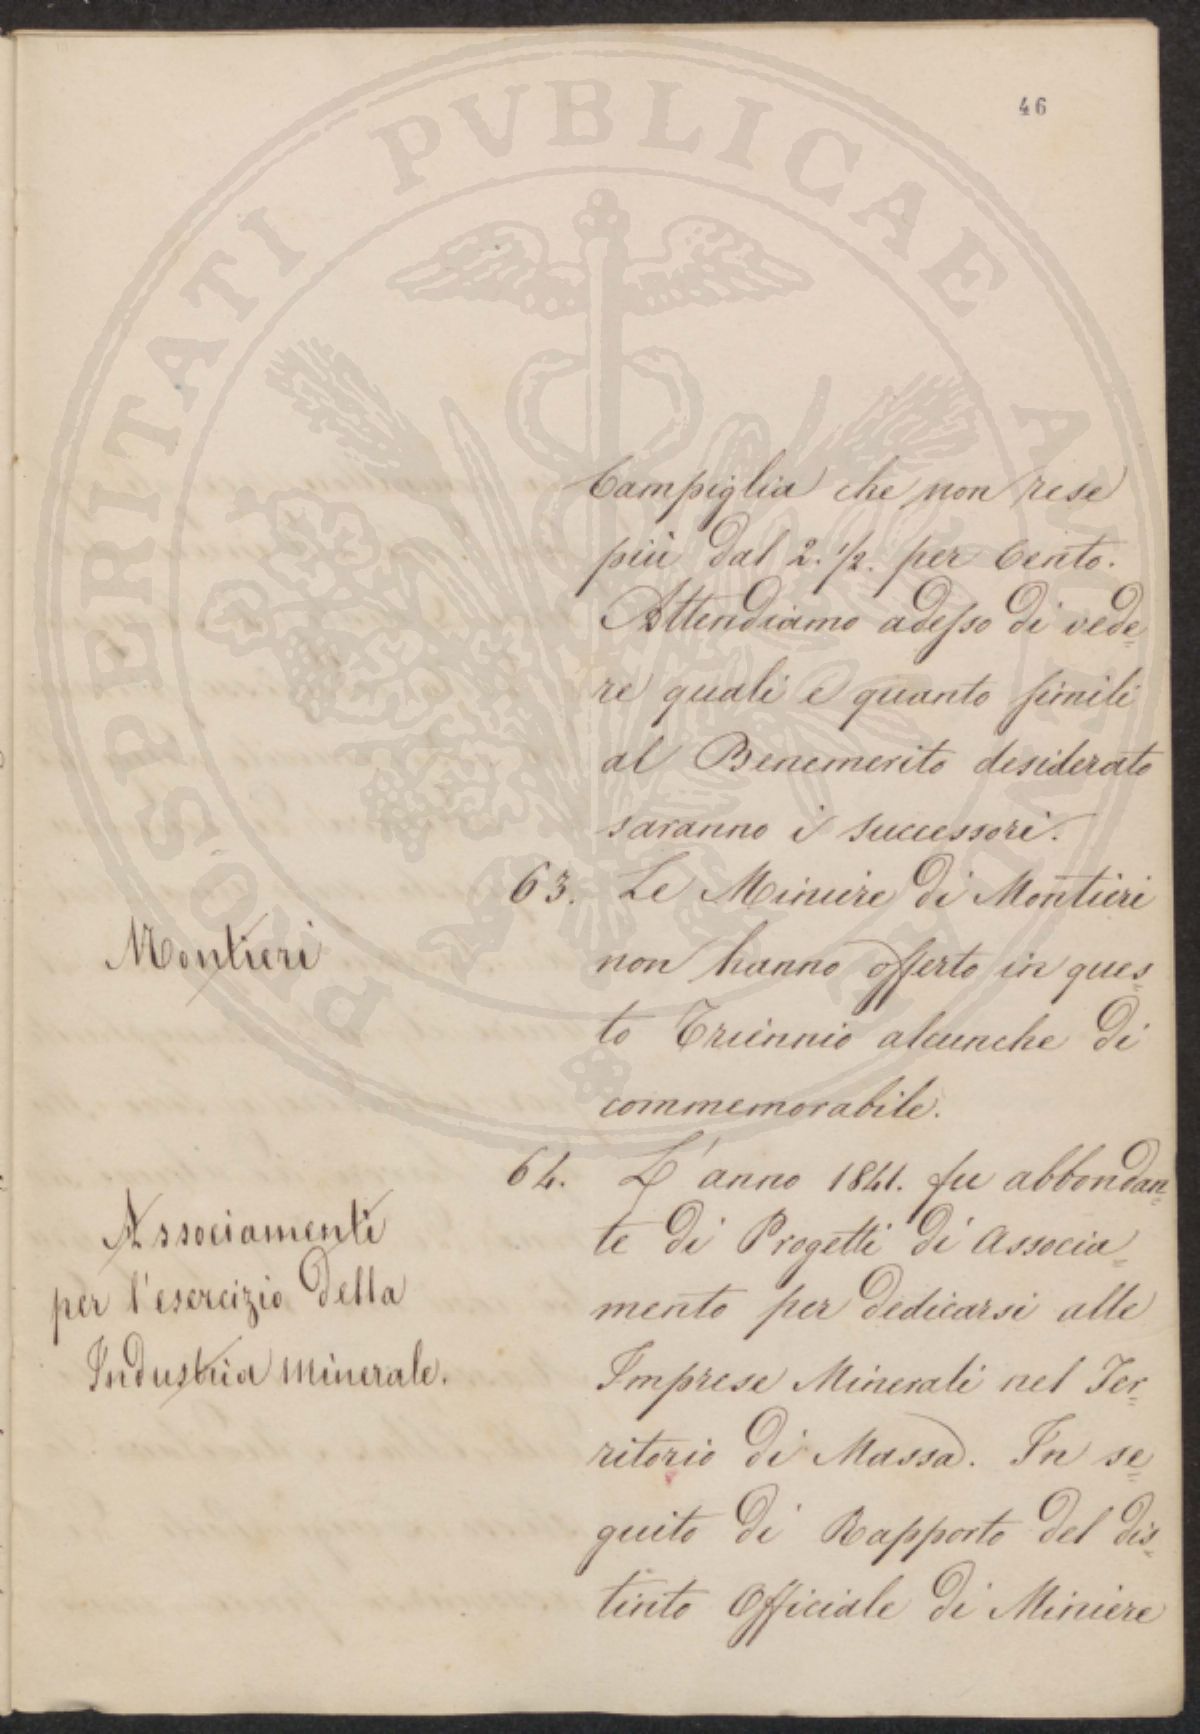 46
PROSPERITATI PVBLICAE
Campiglia che non rese
più dal 2. 1/2. per Cento.
Attendiamo adesso di vede=
re quali e quanto simili
al Benemerito desiderato
saranno i successori.
63. Le Miniere di Montieri
Montieri
non hanno offerto in ques=
to Triennio alcunche di
commemorabile.
64. L'anno 1841. fu abbondan=
Associamenti
te di Progetti di Associa=
per l'esercizio della
mento per dedicarsi alle
Industria minerale.
Imprese Minerali nel Ter=
ritorio di Massa. In se=
guito di Rapporto del dis=
tinto Officiale di Miniere